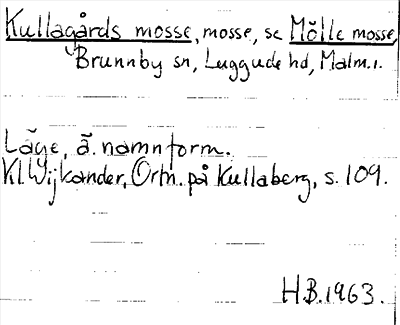 Kullagårds mosse, mosse, se Mölle mosse,
Brunnby sn, Luggude hd, Malm.l.
Läge, ä. namnform.
Kl. Wijkander, Ortn. på Kullaberg, s. 109.
H.B. 1963.